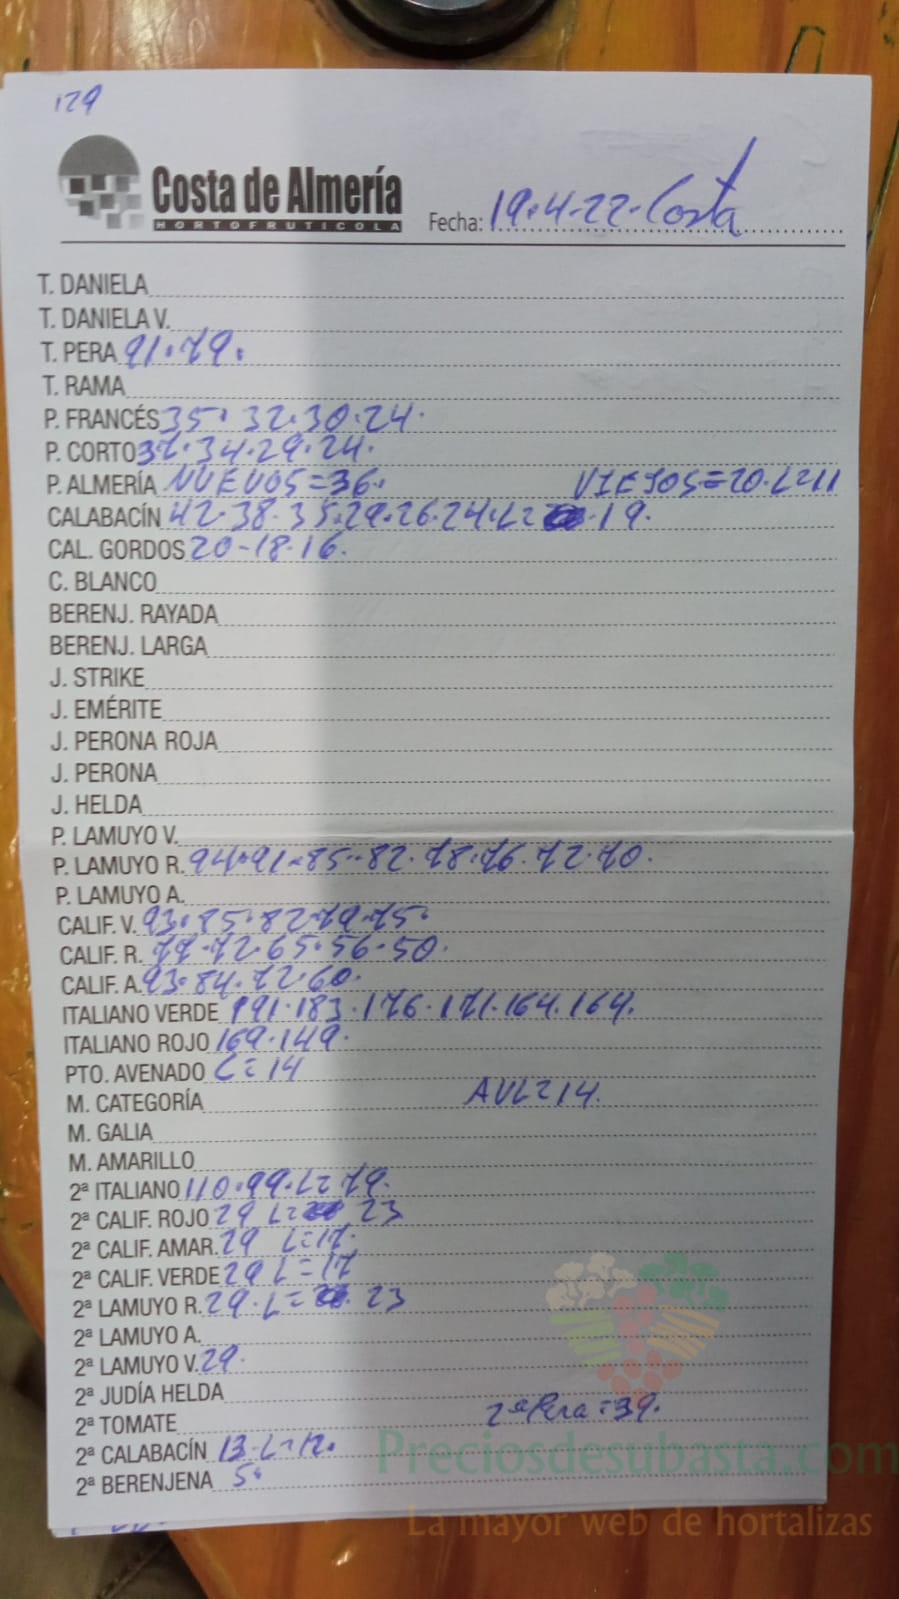 129
Costa de Almería
HORTOFRUTICOLA
Fecha: 19.4.22. Costa
T. DANIELA
T. DANIELA V.
T. PERA 91.79.
T. RAMA
P. FRANCÉS 35. 32.30.24.
P. CORTO 37.34.29.24.
P. ALMERÍA NUEVOS=36. VIEJOS=20.L=11
CALABACÍN 42.38.35.29.26.24.L= .19.
CAL. GORDOS 20-18.16.
C. BLANCO
BERENJ. RAYADA
BERENJ. LARGA
J. STRIKE
J. EMÉRITE
J. PERONA ROJA
J. PERONA
J. HELDA
P. LAMUYO V.
P. LAMUYO R. 94.91.85.82.78.76.72.70.
P. LAMUYO A.
CALIF. V. 93.85.82.79.75.
CALIF. R. 77.72.65.56.50.
CALIF. A. 93.84.72.60.
ITALIANO VERDE 191.183.176.171.164.164.
ITALIANO ROJO 169.149.
PTO. AVENADO L=14
M. CATEGORÍA AVL=14.
M. GALIA
M. AMARILLO
2ª ITALIANO 110.99.L=79.
2ª CALIF. ROJO 29 L= 23
2ª CALIF. AMAR. 29 L=17.
2ª CALIF. VERDE 29 L=17
2ª LAMUYO R. 29.L= 23
2ª LAMUYO A.
2ª LAMUYO V. 29.
2ª JUDÍA HELDA
2ª TOMATE 2ª Pera=39.
2ª CALABACÍN 13.L=12.
2ª BERENJENA 5.
Preciosdesubasta.com
La mayor web de hortalizas